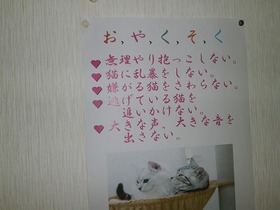 お、や、く、そ、く
無理やり抱っこしない。
猫に乱暴をしない。
嫌がる猫をさわらない。
逃げている猫を
追いかけない。
大きな声、大きな音を
出さない。